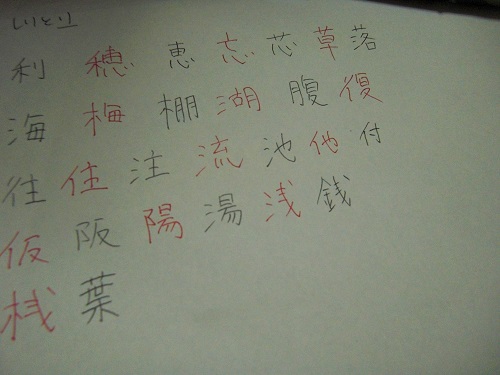 しりとり
利 穂 恵 忘 芯 草 落
海 梅 棚 湖 腹 復
往 住 注 流 池 他 付
仮 阪 陽 湯 浅 銭
桟 葉